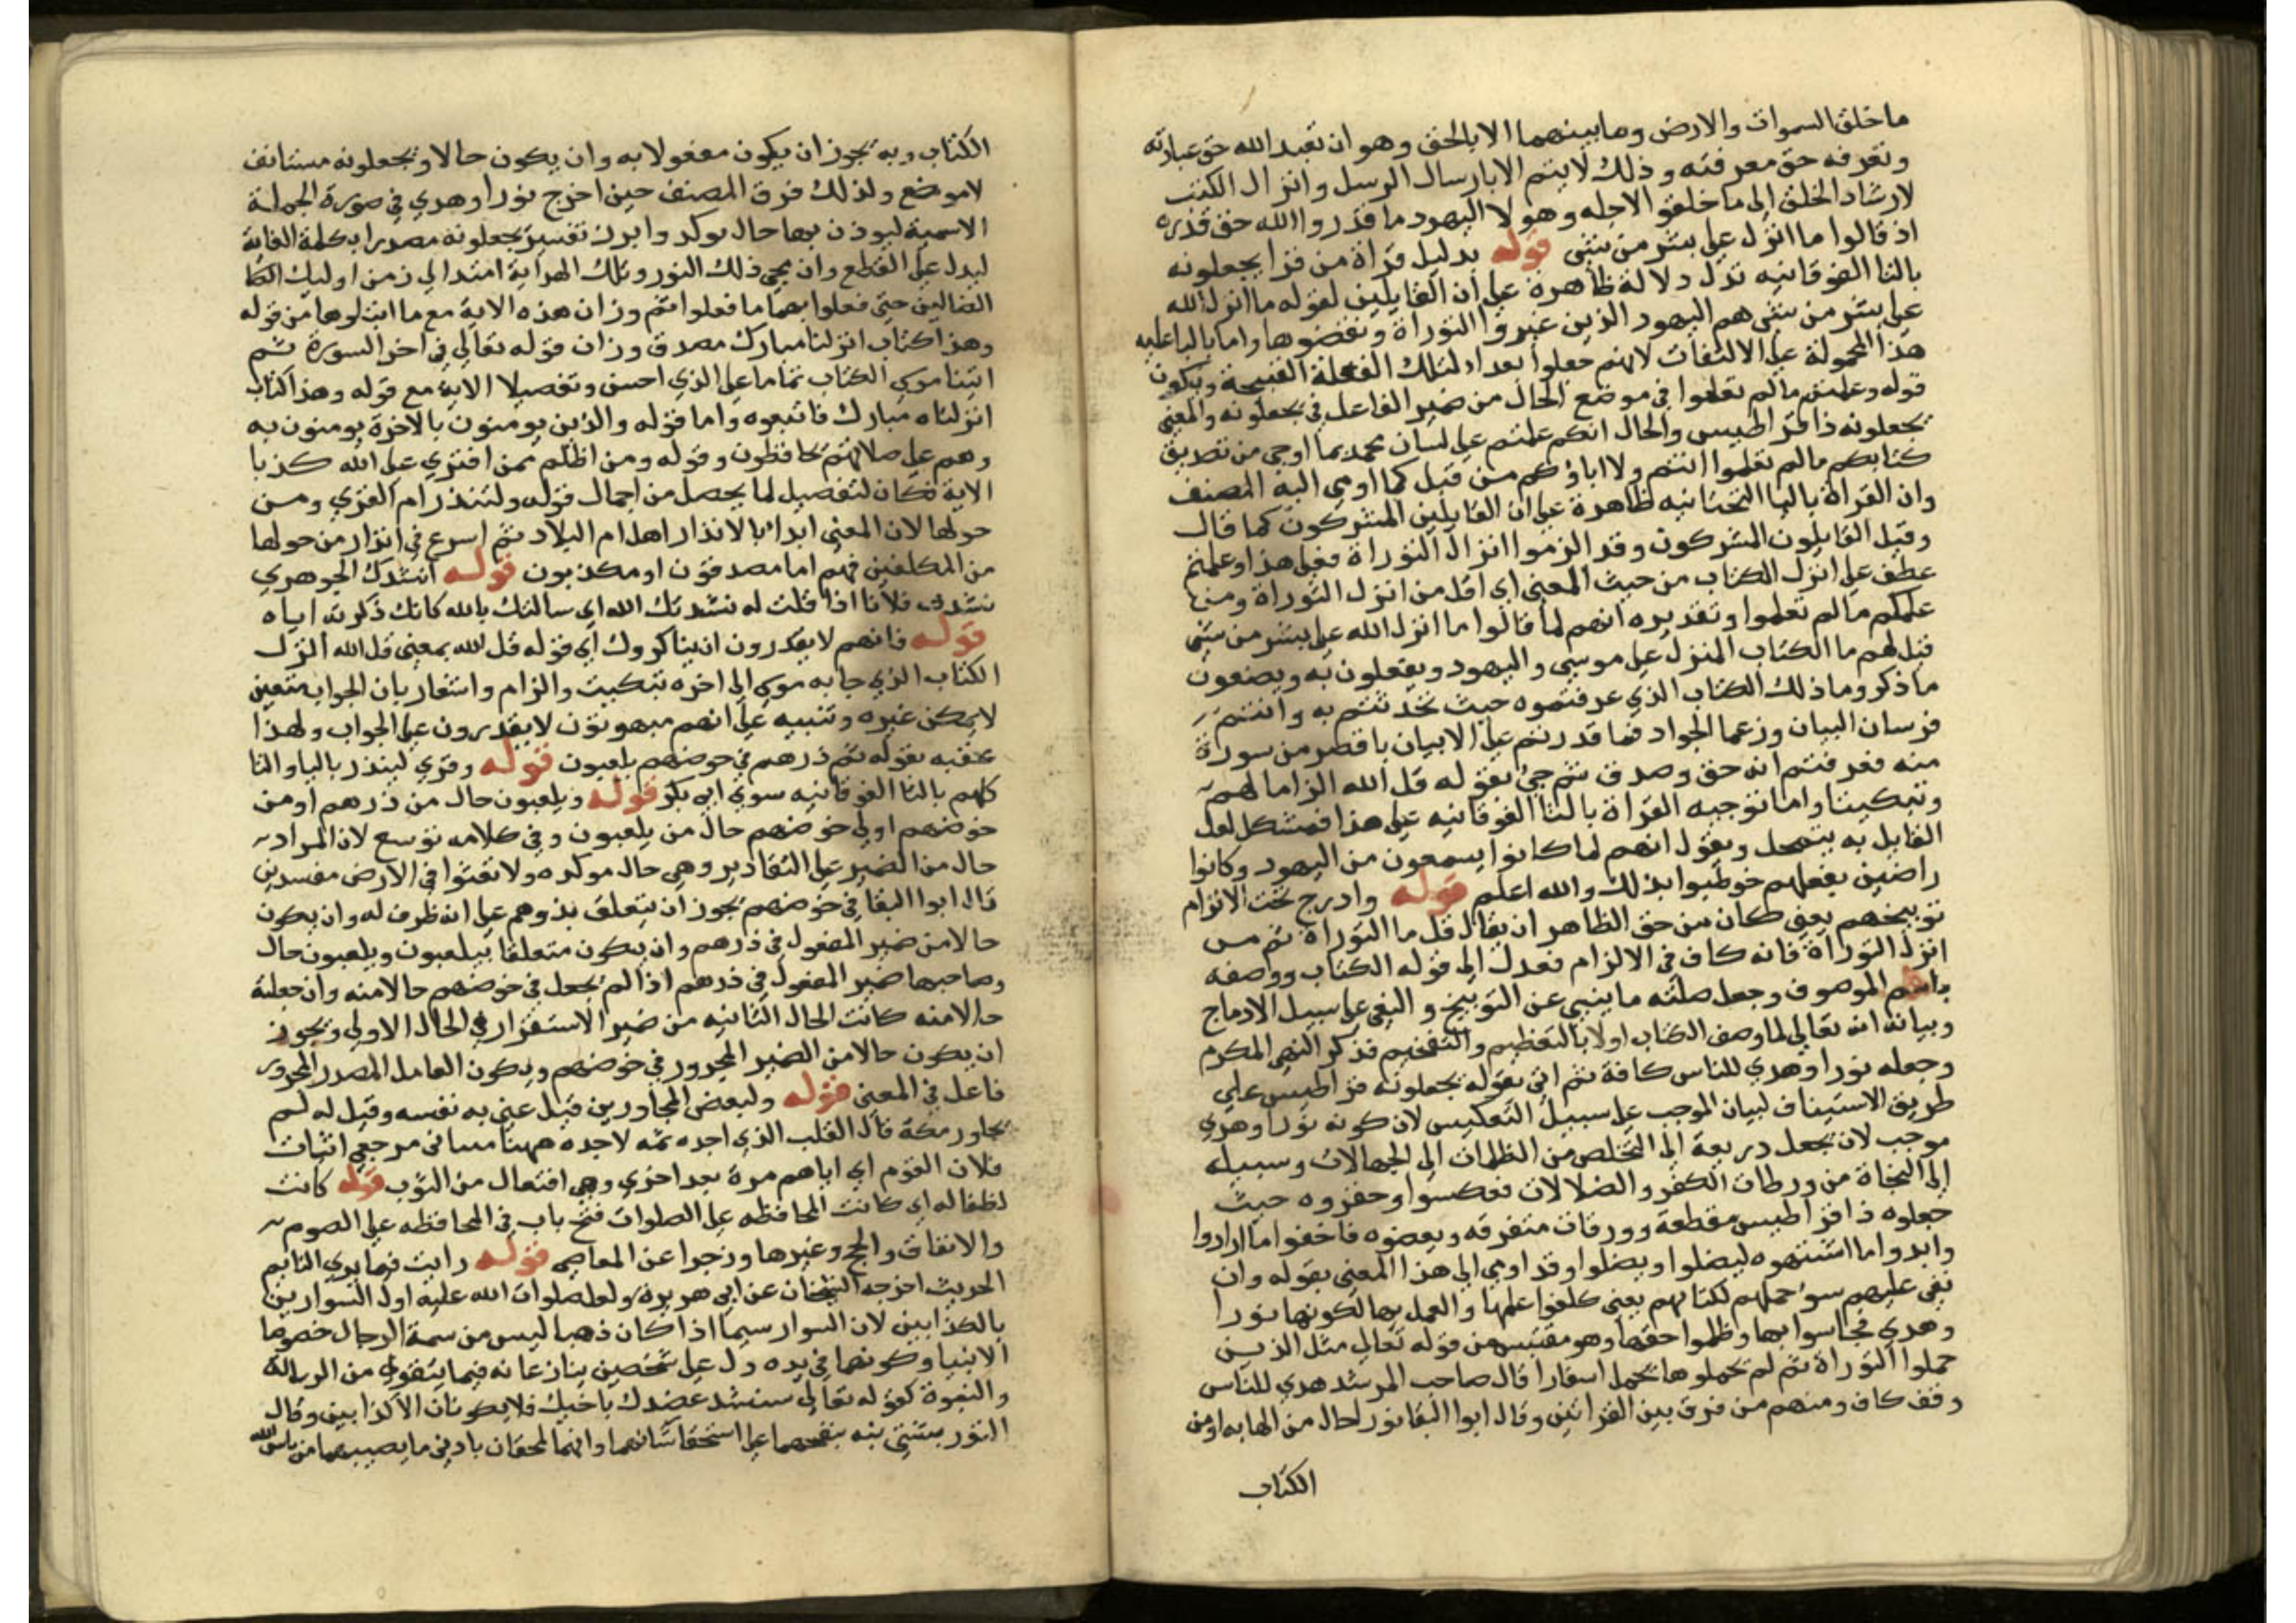 ما خلق السموات والارض وما بينهما الا بالحق وهو ان تعبد الله حق عبادته
وتعرفه حق معرفته وذلك لا يتم الا بارسال الرسل وانزال الكتب
لارشاد الخلق الى ما خلقوا لاجله وهولا اليهود ما قدروا الله حق قدره
اذ قالوا ما انزل على بشر من شى قوله بدليل قراة من قرا يجعلونه
بالتا الفوقانيه تدل دلالة ظاهرة على ان القايلين لقوله ما انزل الله
على بشر من شى هم اليهود الذين غيروا التوراة ونقضوها واما باليا عليه
هذا المحمولة على الالتفات لانهم جعلوا بعدا لتلك الفعلة القبيحة ويكون
قوله وعلمتم ما لم تعلموا في موضع الحال من ضمير الفاعل في يجعلونه والمعنى
تجعلونه ذا قراطيس والحال انكم علمتم على لسان محمد بما اوحي من تصديق
كتابكم ما لم تعلموا انتم ولا اباؤكم من قبل كما اومى اليه المصنف
وان القراة باليا التحتانيه ظاهرة على ان القايلين المشركون كما قال
وقيل القايلون المشركون وقد الزموا انزال التوراة فعلى هذا وعلمتم
عطف على انزل الكتاب من حيث المعنى اى اقل من انزل التوراة ومن
علمكم ما لم تعلموا وتقديره انهم لما قالوا ما انزل الله على بشر من شى
قيل لهم ما الكتاب المنزل على موسى واليهود ويفعلون به ويصنعون
ما ذكر وما ذلك الكتاب الذي عرفتموه حيث تحديتم به وانتم
فرسان البيان وزعما الجواد فما قدرتم على الاتيان باقصر من سورة
منه فعرفتم انه حق وصدق ثم جئ بقوله قل الله الزاما لهم
وتبكيتا واما توجيه القراة بالتا الفوقانيه على هذا فمشكل لعل
القايل به يتمحل ويقول انهم لما كانوا يسمعون من اليهود وكانوا
راضين بفعلهم خوطبوا بذلك والله اعلم قوله وادرج تحت الالزام
توبيخهم يعنى كان من حق الظاهر ان يقال قل ما التوراة ثم من
انزل التوراة فانه كاف في الالزام فعدل الى قوله الكتاب ووصفه
باسم الموصوف وجعل صلته ما ينبي عن التوبيخ والنعى على سبيل الادماج
وبيانه انه تعالى لما وصف الكتاب اولا بالتعظيم والتفخيم فذكر النبى المكرم
وجعله نورا وهدى للناس كافة ثم اتى بقوله تجعلونه قراطيس على
طريق الاستيناف لبيان الموجب على سبيل التعكيس لان كونه نورا وهدي
موجب لان يجعل دريعة الى التخلص من الظلمات الى الجهالات وسبيله
الى النجاة من ورطات الكفر والضلالات فعكسوا وحقروه حيث
جعلوه ذا قراطيس مقطعة وورقات متفرقه وبعضوه فاخفوا ما ارادوا
وابدوا ما اشتهوه ليضلوا ويضلوا وقد اومى الى هذا المعنى بقوله وان
نعى عليهم سوء حملهم لكتابهم يعنى كلفوا علمها والعمل بها لكونها نورا
وهدي فجاسوا بها وظلموا حقها وهو مقتبس من قوله تعالى مثل الذين
حملوا التوراة ثم لم يحملوها يحمل اسفارا قال صاحب المرشد هدي للناس
وقف كاف ومنهم من فرق بين القراتين وقال ابو البقا نورا حال من الها به او من
الكتاب
الكتاب وبه يجوز ان يكون مفعولا به وان يكون حالا وتجعلونه مستانف
لا موضع ولذلك فرق المصنف حين اخرج نورا وهدي في صورة الجملة
الاسمية ليوذن بها حال موكد وابرز تفسير يجعلونه مصدرا بكلمة الغاية
ليدل على القطع وان مجي ذلك النور وتلك الهداية امتد الى زمن اوليك
الضالين حتى فعلوا بهما ما فعلوا ثم وزان هذه الاية مع ما ابتلوها من قوله
وهذا كتاب انزلنا مبارك مصدق وزان قوله تعالى في اخر السورة ثم
اتينا موسى الكتاب تماما على الذي احسن وتفصيلا الاية مع قوله وهذا كتاب
انزلناه مبارك فاتبعوه واما قوله والذين يومنون بالاخرة يومنون به
وهم على صلاتهم يحافظون وقوله ومن اظلم ممن افترى على الله كذبا
الاية فكان لتفصيل لما يحصل من اجمال قوله ولتنذر ام القرى ومن
حولها لان المعنى ابدا بالانذار اهل ام البلاد ثم اسرع في انذار من حولها
من المكلفين فهم اما مصدقون او مكذبون قوله انشدك الجوهري
نشدت فلانا اذا قلت له نشدتك الله اى سالتك بالله كانك ذكرته اياه
قوله فانهم لا يقدرون ان يناكروك اي قوله قل الله بمعنى قل الله انزل
الكتاب الذي جا به موسى الى اخره تبكيت والزام واشعار بان الجواب متعين
لا يمكن غيره وتنبيه على انهم مبهوتون لا يقدرون على الجواب ولهذا
عقبه بقوله ثم ذرهم في خوضهم يلعبون قوله وقري لينذر باليا والتا
كلهم بالتا الفوقانيه سوى ابى بكر قوله ويلعبون حال من ذرهم او من
خوضهم او في خوضهم حال من يلعبون وفي كلامه توسع لان المراد
حال من الضمير على التقادير وهى حال موكده ولا تعثوا في الارض مفسدين
قال ابوا البقا في خوضهم يجوز ان يتعلق بذروهم على انه ظرف له وان يكون
حالا من ضمير المفعول في ذرهم وان يكون متعلقا بيلعبون ويلعبون حال
وصاحبها ضمير المفعول في ذرهم اذا لم يجعل في خوضهم حالا منه وان جعلته
حالا منه كانت الحال الثانيه من ضمير الاستقرار في الحال الاولى ويجوز
ان يكون حالا من الضمير المجرور في خوضهم ويكون العامل المصدر المجرور
فاعل في المعنى قوله ولبعض المجاورين قيل عنى به نفسه وقيل له لم
تجاور مكة قال القلب الذي اجده ثمه لا اجده ههنا
فلان القوم اي اتاهم مرة بعد اخرى وهي افتعال من النوب قوله كانت
لطفا له اى كانت المحافظه على الصلوات فتح باب في المحافظه على الصوم
والانفاق والحج وغيرها وزجرا عن المعاصى قوله رايت فيما يرى النايم
الحديث اخرجه الشيخان عن ابى هريرة ولعل صلوات الله عليه اول السوارين
بالكذابين لان السوار سيما اذا كان ذهبا ليس من سمة الرجال خصوصا
الانبيا وكونهما في يده دل على شخصين ينازعانه فيما يتقوى من الرسالة
والنبوة كقوله تعالى سنشد عضدك باخيك فلا يكونان الا كذابين وقال
التوربشتى نبه بنفخهما على استحقار شانهما وانهما يمحقان بادنى ما يصيبهما من باس الله